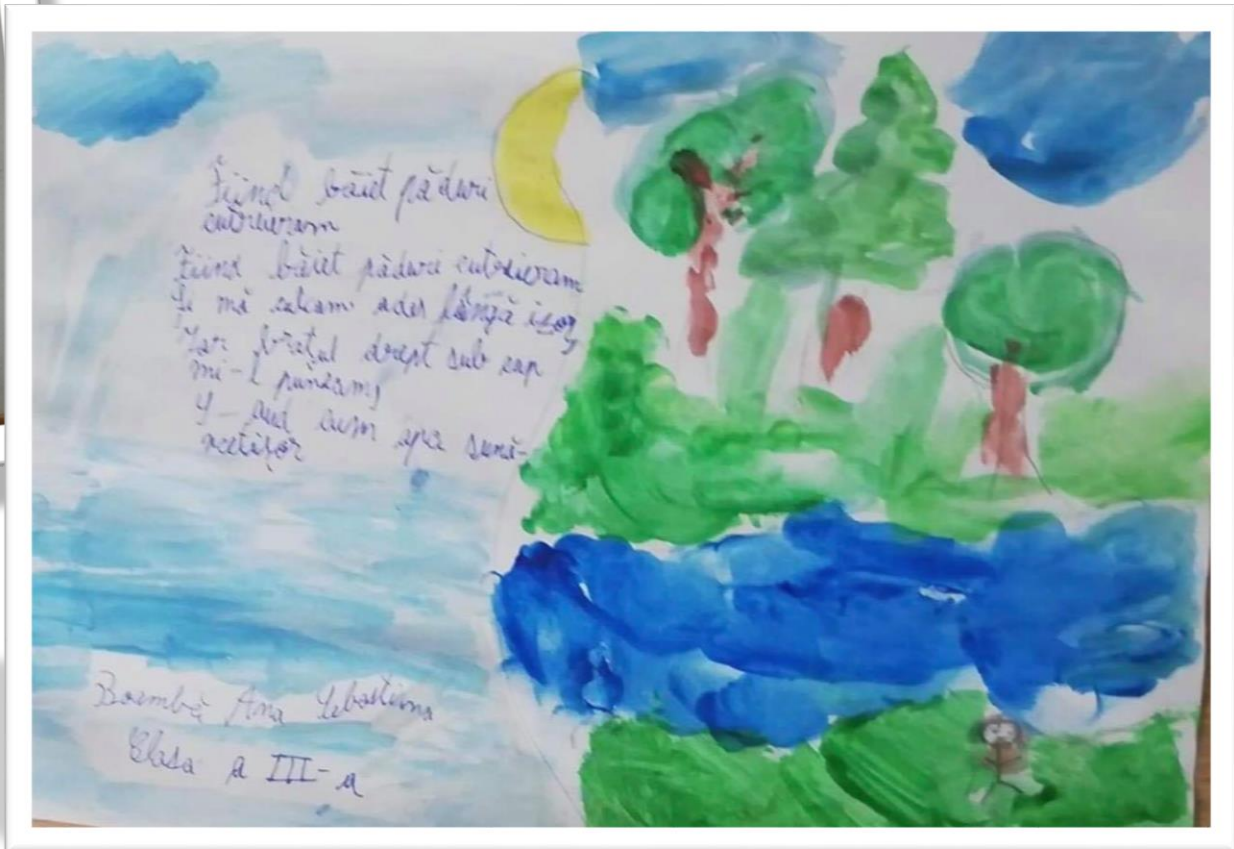 Fiind băiet păduri
cutreieram
Fiind băiet păduri cutreieram
Și mă culcam ades lângă izvor
Iar brațul drept sub cap
mi-l puneam,
S-aud cum apa sună-
ncetișor
Boambă Ana Sebastiana
Clasa a III-a